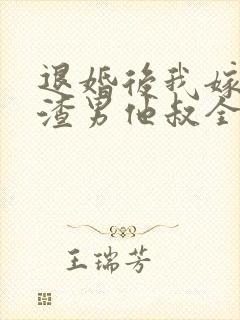 退婚後我嫁
渣男他叔全
王瑞芳